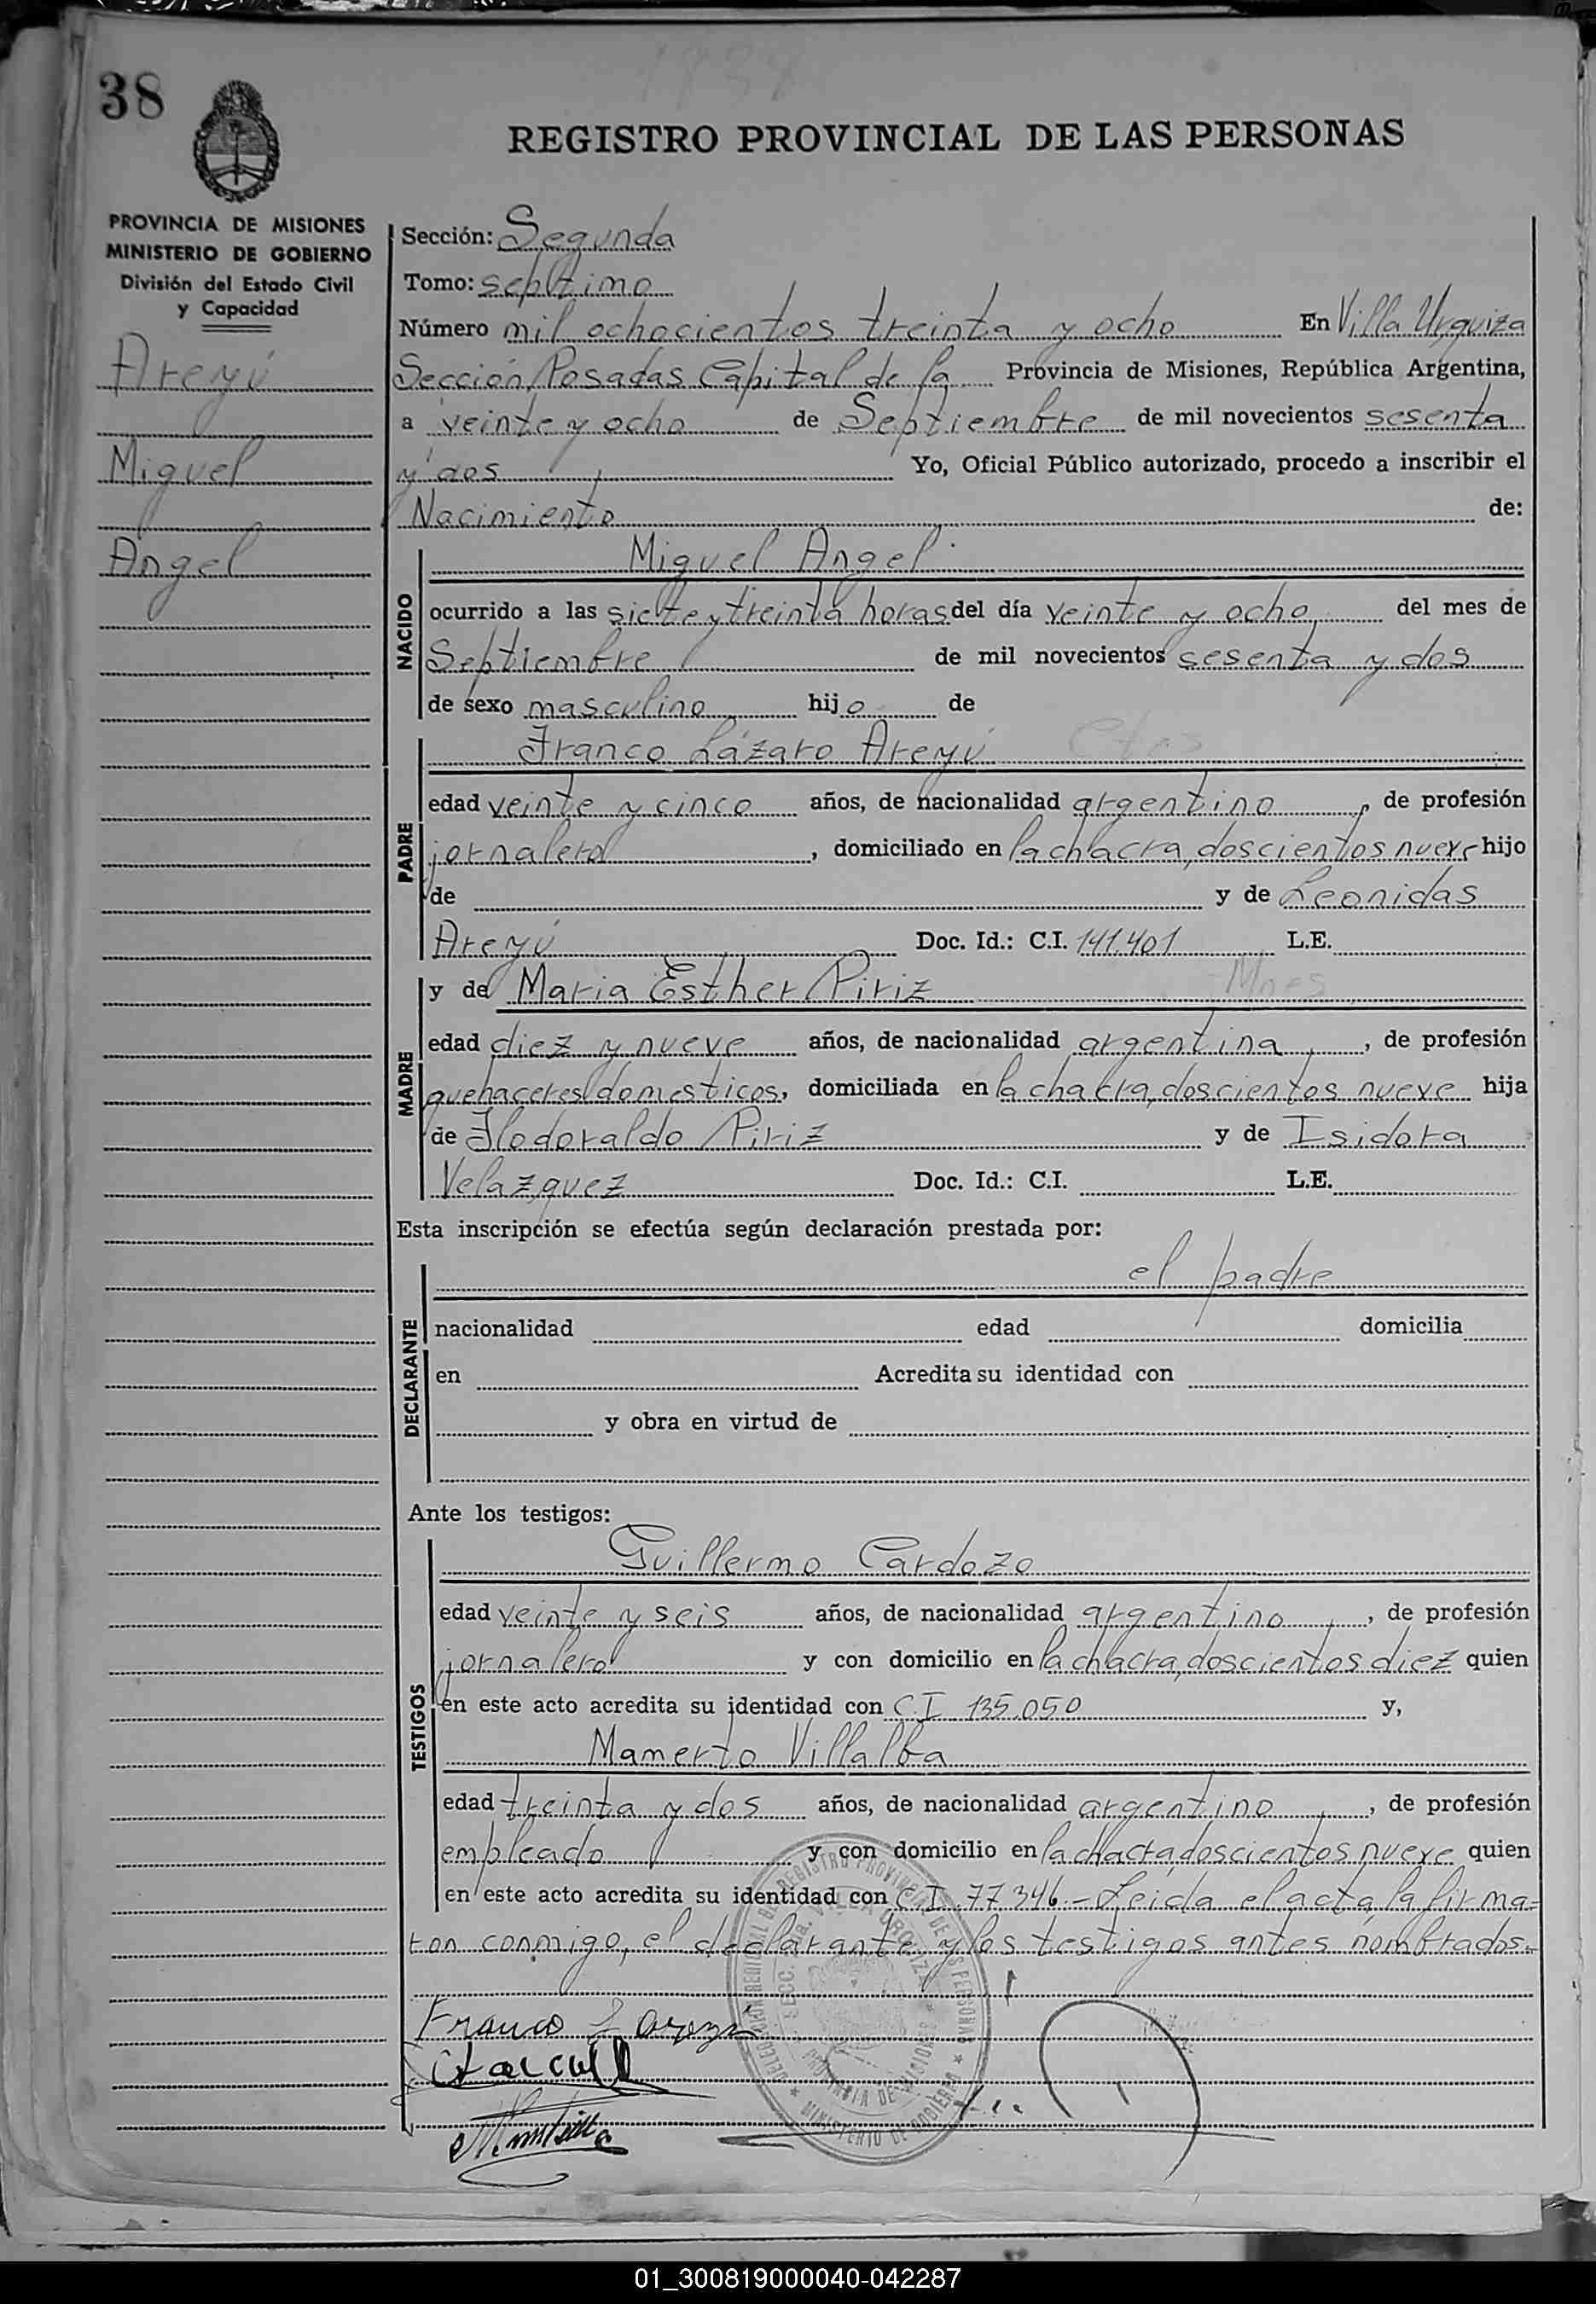 38
REGISTRO PROVINCIAL DE LAS PERSONAS
PROVINCIA DE MISIONES
MINISTERIO DE GOBIERNO
División del Estado Civil
y Capacidad
Areyú
Miguel
Angel
Sección: Segunda
Tomo: septimo
Número mil ochocientos treinta y ocho En Villa Urquiza
Sección, Posadas Capital de la Provincia de Misiones, República Argentina,
a veinte y ocho de Septiembre de mil novecientos sesenta
y dos Yo, Oficial Público autorizado, procedo a inscribir el
Nacimiento de:
NACIDO
Miguel Angel
ocurrido a las siete y treinta horas del día veinte y ocho del mes de
Septiembre de mil novecientos sesenta y dos
de sexo masculino hijo de
PADRE
Franco Lázaro Areyú
edad veinte y cinco años, de nacionalidad argentino, de profesión
jornalero, domiciliado en la chacra, doscientos nueve hijo
de y de Leonidas
Areyú Doc. Id.: C.I. 141.401 L.E.
MADRE
y de Maria Esther Piriz Mnes
edad diez y nueve años, de nacionalidad argentina, de profesión
quehaceres domesticos, domiciliada en la chacra, doscientos nueve hija
de Flodoraldo Piriz y de Isidora
Velazquez Doc. Id.: C.I. L.E.
Esta inscripción se efectúa según declaración prestada por:
DECLARANTE
el padre
nacionalidad edad domicilia
en Acredita su identidad con
y obra en virtud de
Ante los testigos:
TESTIGOS
Guillermo Cardozo
edad veinte y seis años, de nacionalidad argentino, de profesión
jornalero y con domicilio en la chacra, doscientos diez quien
en este acto acredita su identidad con C.I. 135.050 y,
Mamerto Villalba
edad treinta y dos años, de nacionalidad argentino, de profesión
empleado y con domicilio en la chacra doscientos nueve quien
en este acto acredita su identidad con C.I. 77346.- Leída el acta, la firma=
ron conmigo, el declarante y los testigos antes nombrados.-
Franco L Areyú
01_300819000040-042287